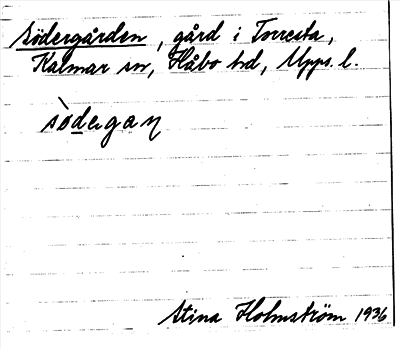 Södergården, gård i Torresta,
Kalmar sn, Håbo hd, Upps. l.
sòdegaɳ
Stina Holmström 1936